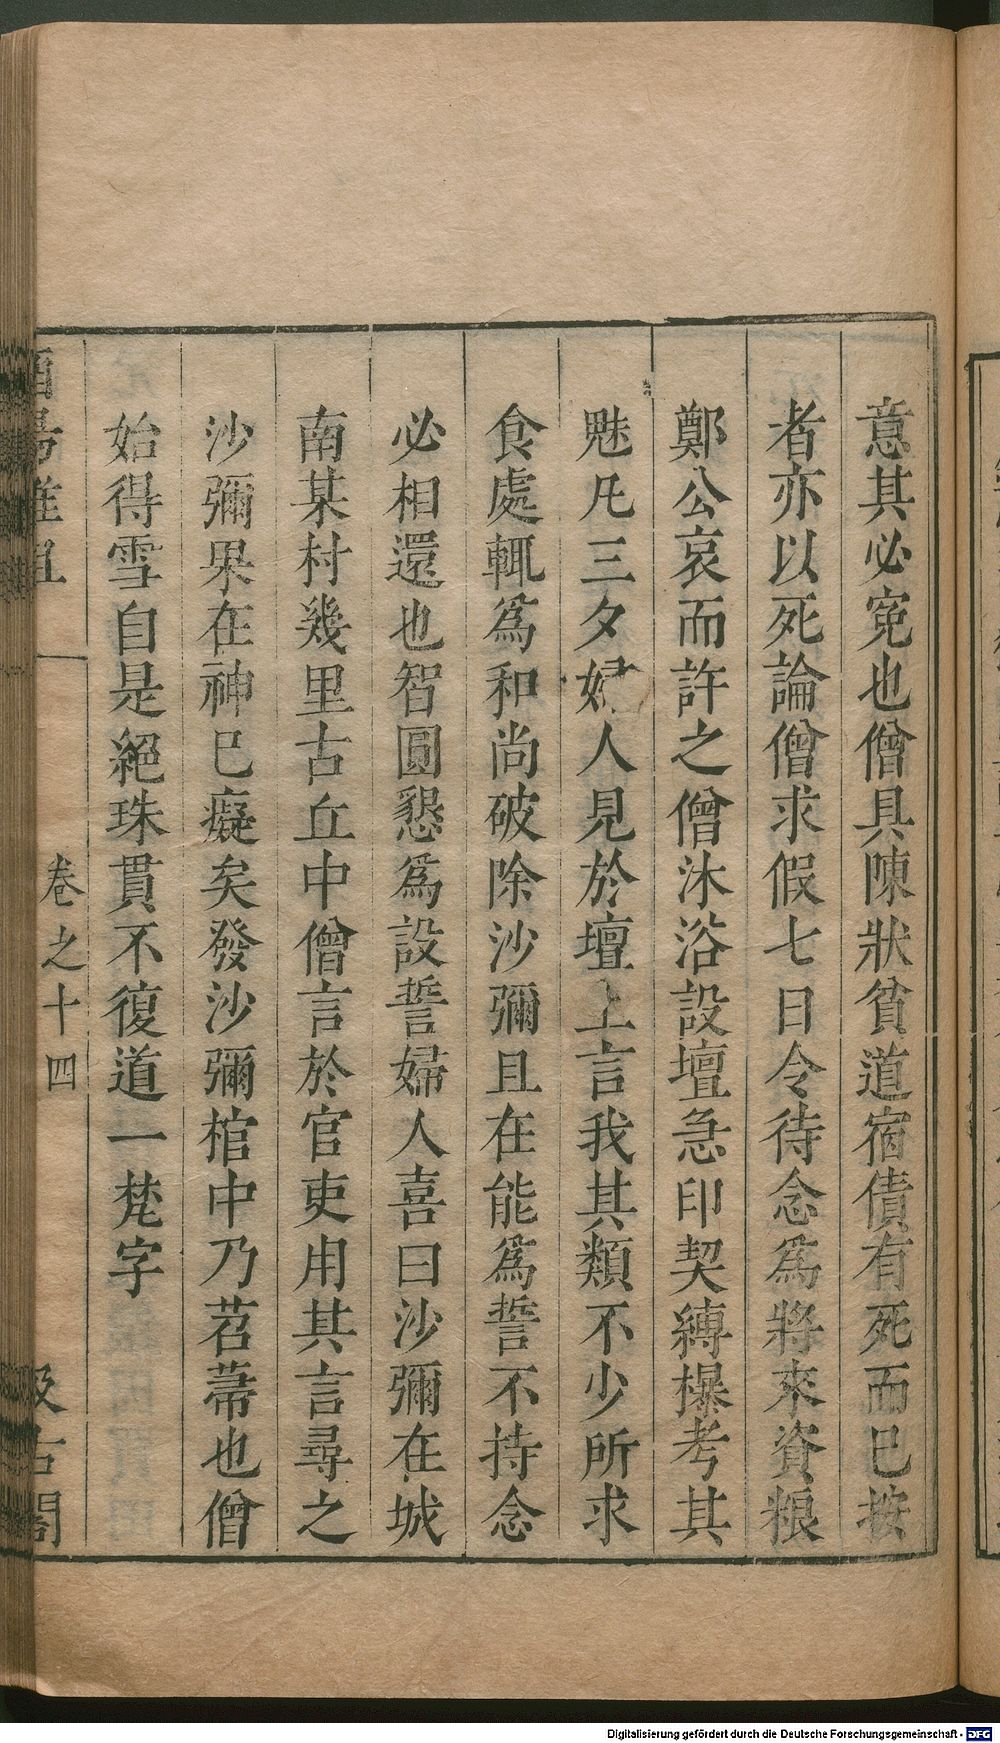 意其必寃也僧具陳狀貧道宿債有死而已按
者亦以死論僧求假七日令待念為將來資粮
鄭公哀而許之僧沐浴設壇急印契縛㩧考其
魅凡三夕婦人見於壇上言我其類不少所求
食處輒為和尚破除沙彌且在能為誓不持念
必相還也智圓懇為設誓婦人喜曰沙彌在城
南某村幾里古丘中僧言於官吏用其言尋之
沙彌果在神已癡矣發沙彌棺中乃苕蔕也僧
始得雪自是絕珠貫不復道一梵字
酉陽雜俎
卷之十四
汲古閣
Digitalisierung gefördert durch die Deutsche Forschungsgemeinschaft - DFG